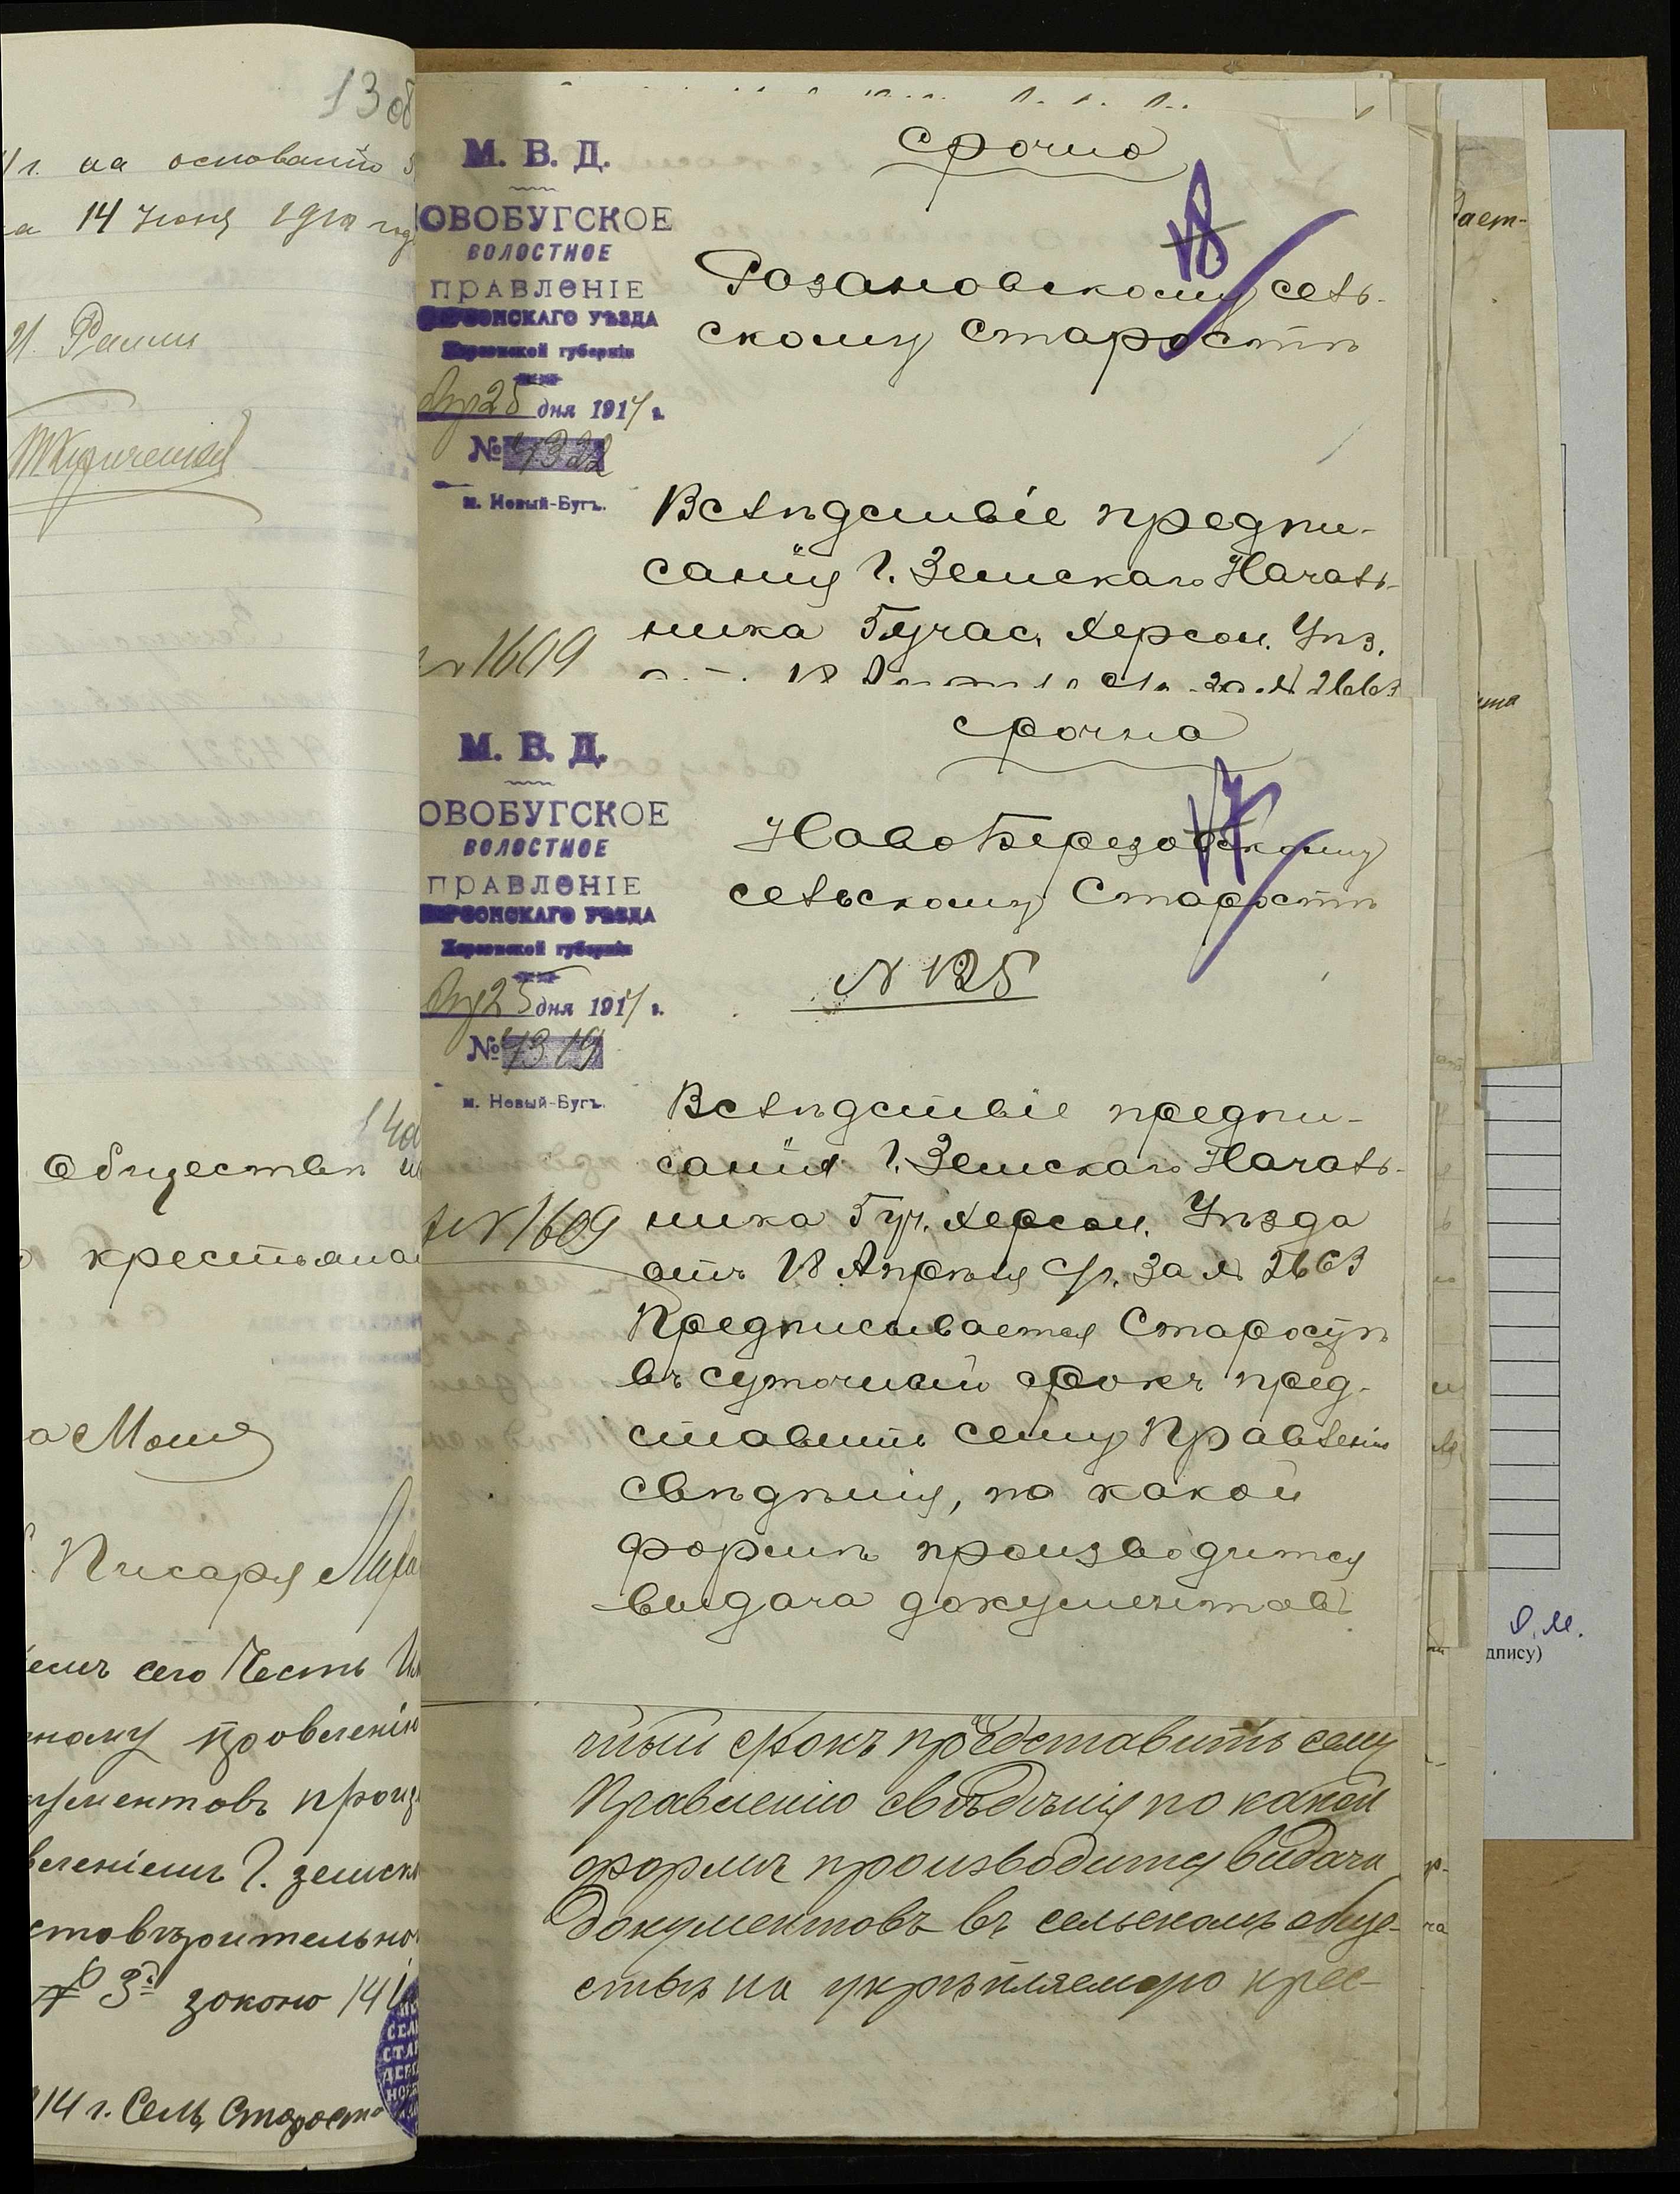 13 об
1 г. на основании
14 Июня 1910 года
Обществѣ
крестьяна
Писаря
сего Честь
ному провленію
ументовъ произ
веленіемъ Г. земск
стовѣрительно
3 законо 14
14 г. Сель Староста
Срочно
М. В. Д.
ОВОБУГСКОЕ
ВОЛОСТНОЕ
ПРАВЛЕНІЕ
ХЕРСОНСКАГО УѢЗДА
Херсонской губерніи
25 дня 1914 г.
№ 4322
м. Новый-Бугъ.
18
Розановскому сель-
скому Старостѣ
Вслѣдствіе предпи-
санія Г. Земскаго Началь-
ника 5 участ. Херсон. Уѣз.
18 Апрѣля с/г. за № 2663
№ 1609
Срочно
М. В. Д.
ОВОБУГСКОЕ
ВОЛОСТНОЕ
ПРАВЛЕНІЕ
ХЕРСОНСКАГО УѢЗДА
Херсонской губерніи
25 дня 1914 г.
№ 4319
м. Новый-Бугъ.
17
НовоБерезовскому
сельскому Старостѣ
N 125
Вслѣдствіе предпи-
санія Г. Земскаго Началь-
ника 5 уч. Херсон. Уѣзда
отъ 18 Апрѣля с/г. за № 2663
Предписывается Старостѣ
въ суточный срокъ пред-
ставить сему Правленію
свѣдѣнія, по какой
формѣ производится
выдача документовъ
№ 1609
чный срокъ представить сему
Правленію свѣдѣнія по какой
формѣ производится видачи
документовъ въ сельскомъ обще-
ствѣ на укрѣпляемую крес-
дпису)